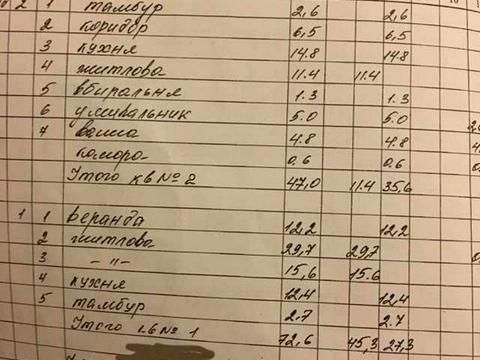 2 1 тамбур 2,6 2,6
2 коридор 6,5 6,5
3 кухня 14.8 14.8
4 житлова 11.4 11.4
5 вбиральня 1.3 1.3
6 умивальник 5.0 5.0
7 ванна 4.8 4.8
комора 0.6 0.6
Итого кв № 2 47,0 11.4 35,6
1 1 веранда 12,2 12,2
2 житлова 29,7 29,7
3 -"- 15,6 15.6
4 кухня 12,4 12,4
5 тамбур 2.7 2.7
Итого № 1 72,6 45,3 27,3